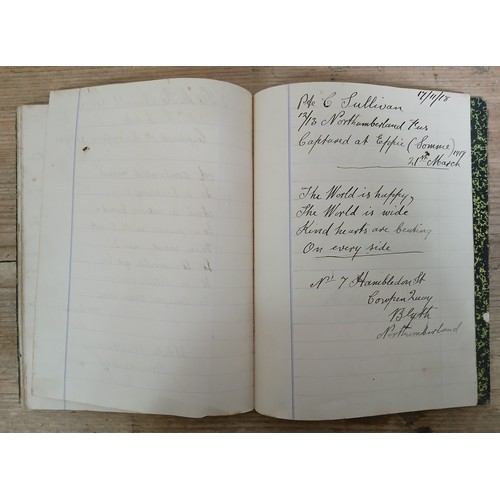 17/11/18
Pte C Sullivan
12/13 Northumberland Fus
Captured at Eppie (Somme)
21st March
The World is happy,
The World is wide
Kind hearts are beating
On every side
No 7 Hambledon St
Cowpen Quay
Blyth
Northumberland